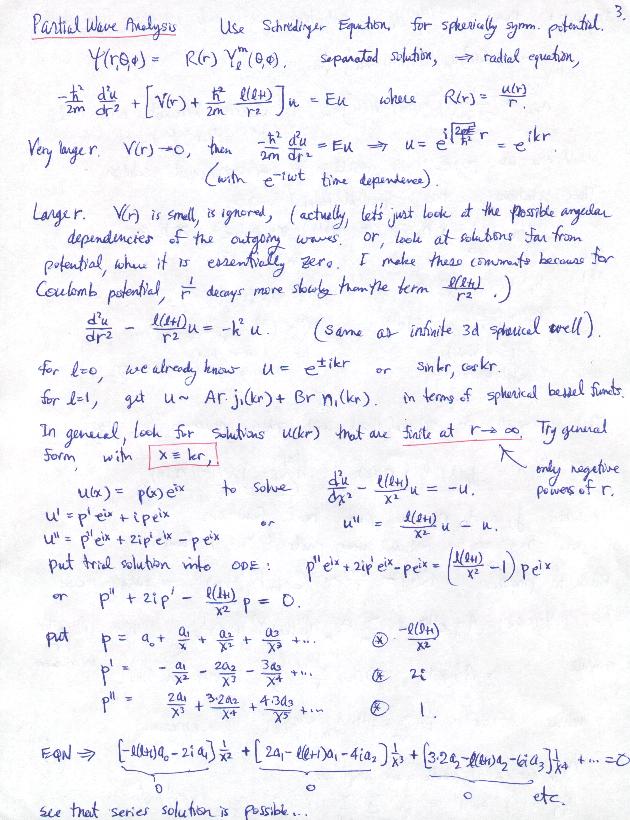 3.
Partial Wave Analysis   Use Schredinger Equation, for spherically symm. potential.
Ψ(r,θ,φ) = R(r) Yₗᵐ(θ,φ).   separated solution, ⇒ radial equation,
-ħ²/2m d²u/dr² + [V(r) + ħ²/2m l(l+1)/r²] u = Eu   where   R(r) = u(r)/r.
Very large r.   V(r)→0, then   -ħ²/2m d²u/dr² = Eu ⇒ u = e^{i√(2mE/ħ²) r} = e^{ikr}.
(with e^{-iωt} time dependence).
Large r.   V(r) is small, is ignored, (actually, let's just look at the possible angular
dependencies of the outgoing waves. Or, look at solutions far from
potential, where it is essentially zero. I make these comments because for
Coulomb potential, 1/r decays more slowly than the term l(l+1)/r².)
d²u/dr² - l(l+1)/r² u = -k²u.   (same as infinite 3d spherical well).
for l=0, we already know u = e^{±ikr} or sin kr, cos kr.
for l=1, get u ~ Ar·j₁(kr) + Br n₁(kr). in terms of spherical bessel functs.
In general, look for solutions u(kr) that are finite at r→∞. Try general
form, with x ≡ kr,
only negative
powers of r.
u(x) = p(x)e^{ix}   to solve   d²u/dx² - l(l+1)/x² u = -u.
u' = p'e^{ix} + ipe^{ix}   or   u'' = l(l+1)/x² u - u.
u'' = p''e^{ix} + 2ip'e^{ix} - pe^{ix}
put trial solution into ODE:   p''e^{ix} + 2ip'e^{ix} - pe^{ix} = (l(l+1)/x² - 1) pe^{ix}
or   p'' + 2ip' - l(l+1)/x² p = 0.
put   p = a₀ + a₁/x + a₂/x² + a₃/x³ + ...   ⊛ -l(l+1)/x²
p' = -a₁/x² - 2a₂/x³ - 3a₃/x⁴ + ...   ⊛ 2i
p'' = 2a₁/x³ + 3·2a₂/x⁴ + 4·3a₃/x⁵ + ...   ⊛ 1.
EQN ⇒ [-l(l+1)a₀ - 2ia₁] 1/x² + [2a₁ - l(l+1)a₁ - 4ia₂] 1/x³ + [3·2a₂ - l(l+1)a₂ - 6ia₃] 1/x⁴ + ... = 0
0   0   0   etc.
see that series solution is possible...